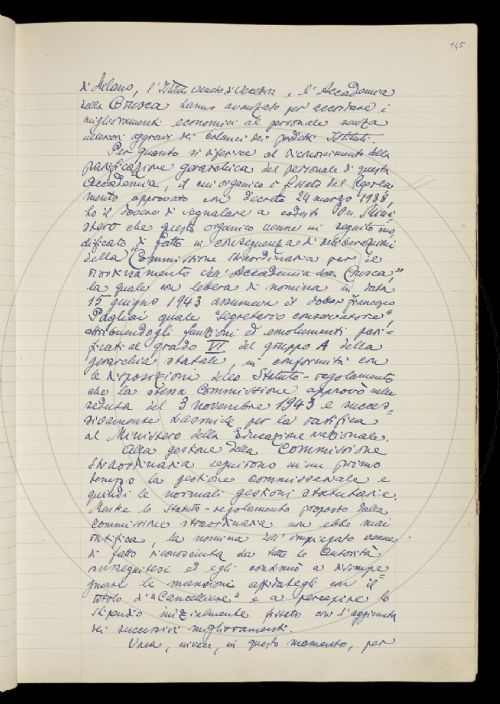 145
di Milano, l'Istituto veneto di Venezia e l'Accademia
della Crusca hanno avanzato per accordare i
miglioramenti economici al personale senza
ulteriori aggravi dei bilanci dei predetti Istituti.
Per quanto si riferisce al riconoscimento della
parificazione gerarchica del personale di questa
Accademia, il cui organico è fissato dal Regola-
mento approvato con decreto 24 marzo 1938,
ho il dovere di segnalare a codesto On. Mini-
stero che questo organico venne in seguito mo-
dificato di fatto in conseguenza di deliberazioni
della "Commissione straordinaria per il
riordinamento dell'Accademia della Crusca"
la quale con lettera di nomina in data
15 giugno 1943 assumeva il dottor Francesco
Pagliai quale "Segretario conservatore",
attribuendogli funzioni ed emolumenti pari-
ficati al grado VII del gruppo A della
gerarchia statale, in conformità con
le disposizioni dello Statuto-regolamento
che la stessa Commissione approvò nella
seduta del 3 novembre 1943 e succes-
sivamente trasmise per la ratifica
al Ministero della Educazione nazionale.
Alla gestione della Commissione
straordinaria seguirono in un primo
tempo la gestione commissariale e
quindi le normali gestioni statutarie.
Mentre lo Statuto-regolamento proposto dalla
Commissione straordinaria non ebbe mai
ratifica, la nomina dell'impiegato venne
di fatto riconosciuta da tutte le autorità
susseguitesi ed egli continuò a disimpe-
gnare le mansioni affidategli con il
titolo di "Cancelliere" e a percepire lo
stipendio inizialmente fissato con l'aggiunta
dei successivi miglioramenti.
Ora, invece, in questo momento, per